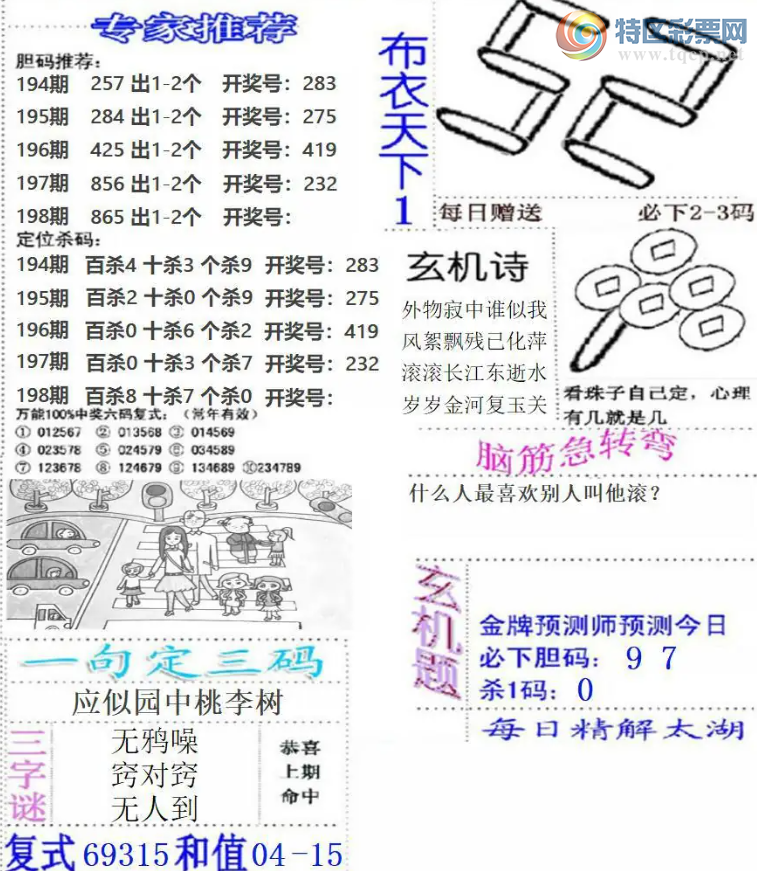 专家推荐
胆码推荐:
194期 257 出1-2个 开奖号: 283
195期 284 出1-2个 开奖号: 275
196期 425 出1-2个 开奖号: 419
197期 856 出1-2个 开奖号: 232
198期 865 出1-2个 开奖号:
定位杀码:
194期 百杀4 十杀3 个杀9 开奖号: 283
195期 百杀2 十杀0 个杀9 开奖号: 275
196期 百杀0 十杀6 个杀2 开奖号: 419
197期 百杀0 十杀3 个杀7 开奖号: 232
198期 百杀8 十杀7 个杀0 开奖号:
万能100%中奖六码复式: (常年有效)
① 012567 ② 013568 ③ 014569
④ 023578 ⑤ 024579 ⑥ 034589
⑦ 123678 ⑧ 124679 ⑨ 134689 ⑩234789
一句定三码
应似园中桃李树
三字谜
无鸦噪
窍对窍
无人到
恭喜
上期
命中
复式 69315 和值 04-15
特区彩票网
www.tqcp.net
布衣天下1
52
每日赠送 必下2-3码
玄机诗
外物寂中谁似我
风絮飘残已化萍
滚滚长江东逝水
岁岁金河复玉关
看珠子自己定, 心理
有几就是几
脑筋急转弯
什么人最喜欢别人叫他滚?
玄机题
金牌预测师预测今日
必下胆码: 9 7
杀1码: 0
每日精解太湖